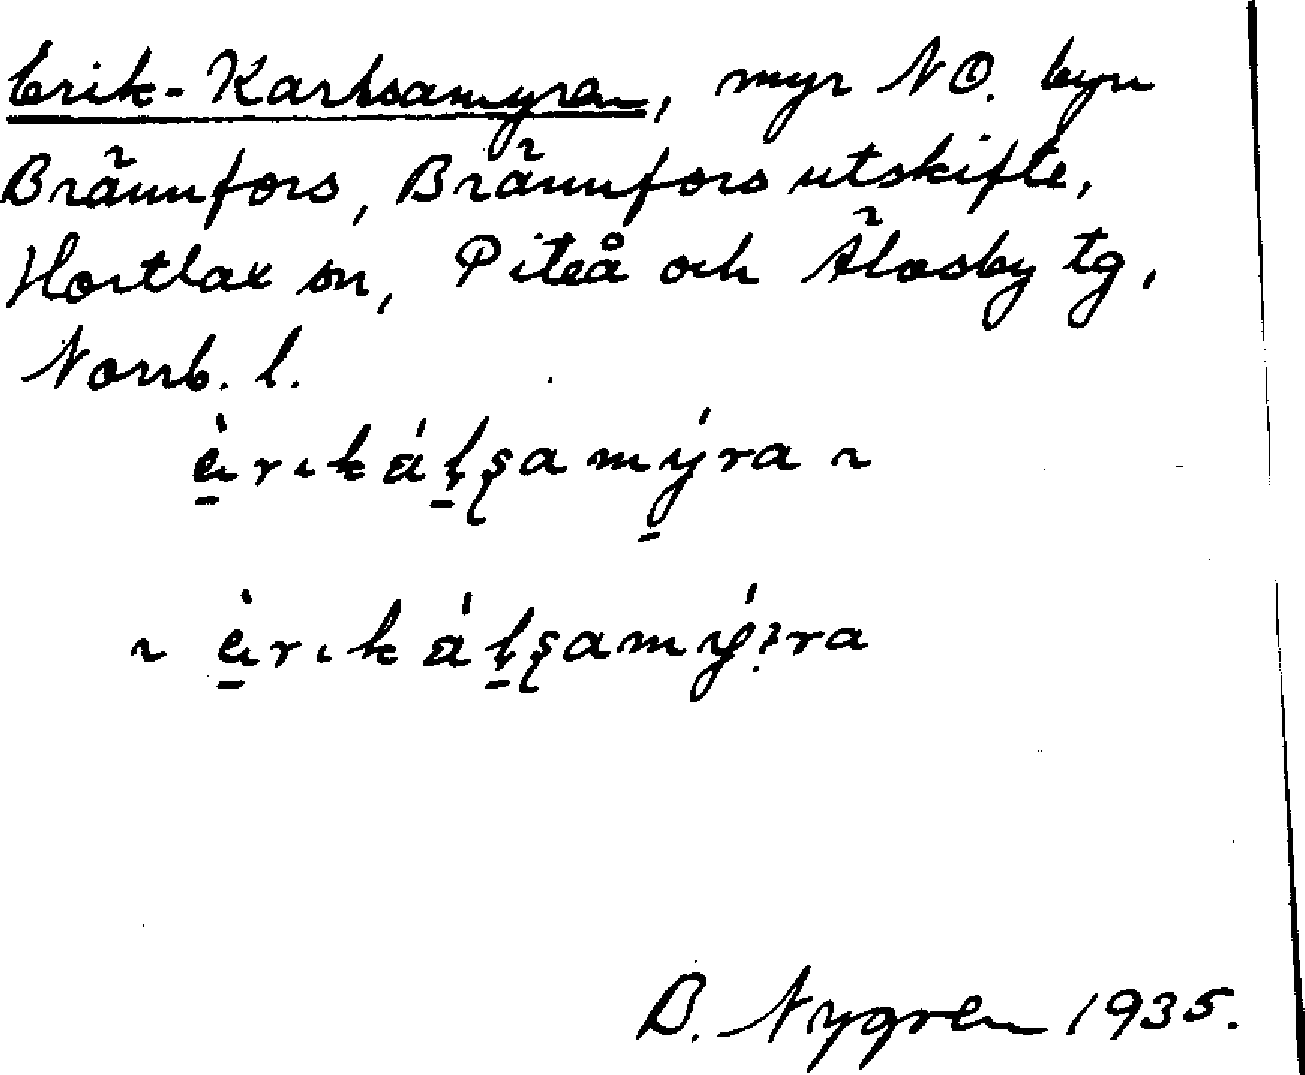 Erik-Karlsamyran, myr NO. byn
Brännfors, Brännfors utskifte,
Hortlax sn, Piteå och Älvsby tg,
Norrb. l.
B. Nygren 1935.